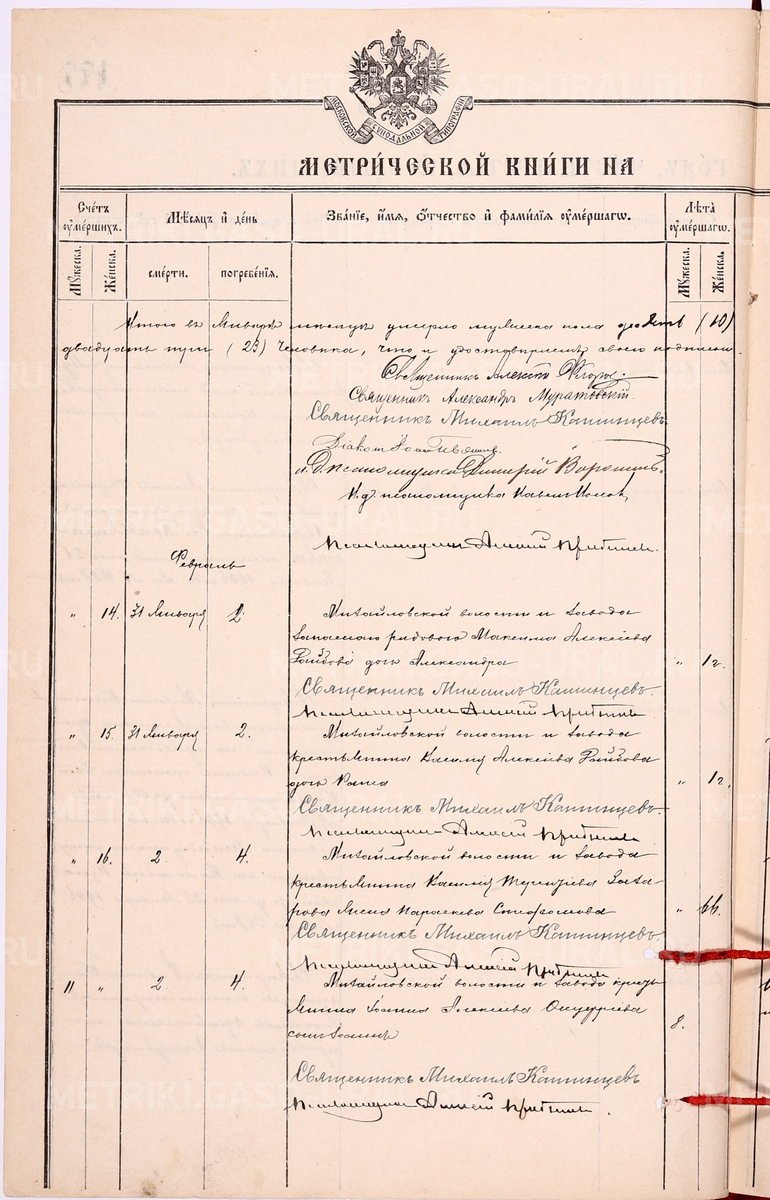 МОСКОВСКОЙ СѴНОДАЛЬНОЙ ТИПОГРАФІИ
МЕТРИ́ЧЕСКОЙ КНИ́ГИ НА
Сче́тъ ᲂумершихъ.
Мѣсяцъ и день
Зва́ніе, и́мя, ѻ́тчество и фами́лія ᲂуме́ршагѡ.
Лѣ́та ᲂуме́ршагѡ.
Мꙋжеска.
Же́нска.
сме́рти.
погребе́нія.
Мꙋжеска.
Же́нска.
Итого въ Январѣ мѣсяцѣ умерло мужеска пола десять (10)
двадцать три (23) человѣка, что и удостовѣряемъ своею подписью.
Священникъ Алексій
Священникъ Александръ Муратовскій.
Священникъ Михаилъ Кашинцевъ.
Діаконъ Іоаннъ
и. д. псаломщика Димитрій Воронинъ.
И. д. псаломщика Павелъ Поповъ,
Псаломщикъ Алексій
Февраль
" 14. 31 Января 2. Михайловской волости и завода
запаснаго рядового Максима Алексіева
дочь Александра " 1 г.
Священникъ Михаилъ Кашинцевъ.
Псаломщикъ Алексій
" 15. 31 Января 2. Михайловской волости и завода
крестьянина Василія Алексіева
дочь Раиса " 1 г.
Священникъ Михаилъ Кашинцевъ.
Псаломщикъ Алексій
" 16. 2. 4. Михайловской волости и завода
крестьянина Василія Терентіева Заха-
рова жена Параскева Стефанова " 66.
Священникъ Михаилъ Кашинцевъ.
Псаломщикъ Алексій
11 " 2. 4. Михайловской волости и завода кресть-
янина Іоанна Алексіева Онуфріева
сынъ Іоаннъ 8.
Священникъ Михаилъ Кашинцевъ
Псаломщикъ Алексій